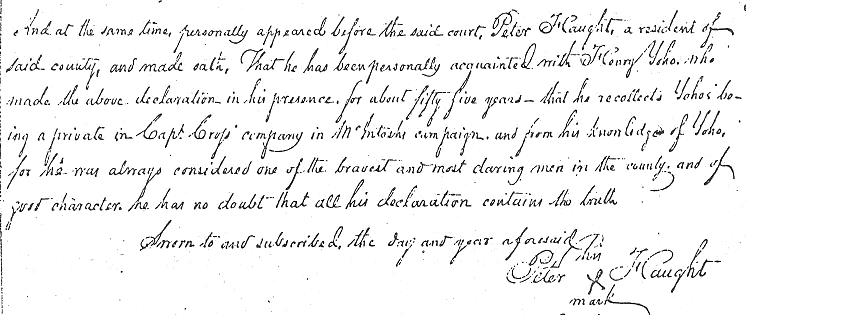 And at the same time, personally appeared before the said court, Peter Haught, a resident of
said county, and made oath, That he has been personally acquainted with Henry Yoho, who
made the above declaration in his presence, for about fifty five years – that he recollects Yohos be-
ing a private in Capt Crops' company in McIntoshs campaign. and from his knowledge of Yoho,
for he was always considered one of the bravest and most daring men in the county. and of
good character. he has no doubt that all his declaration contains the truth
Sworn to and subscribed, the day and year aforesaid
his
Peter X Haught
mark